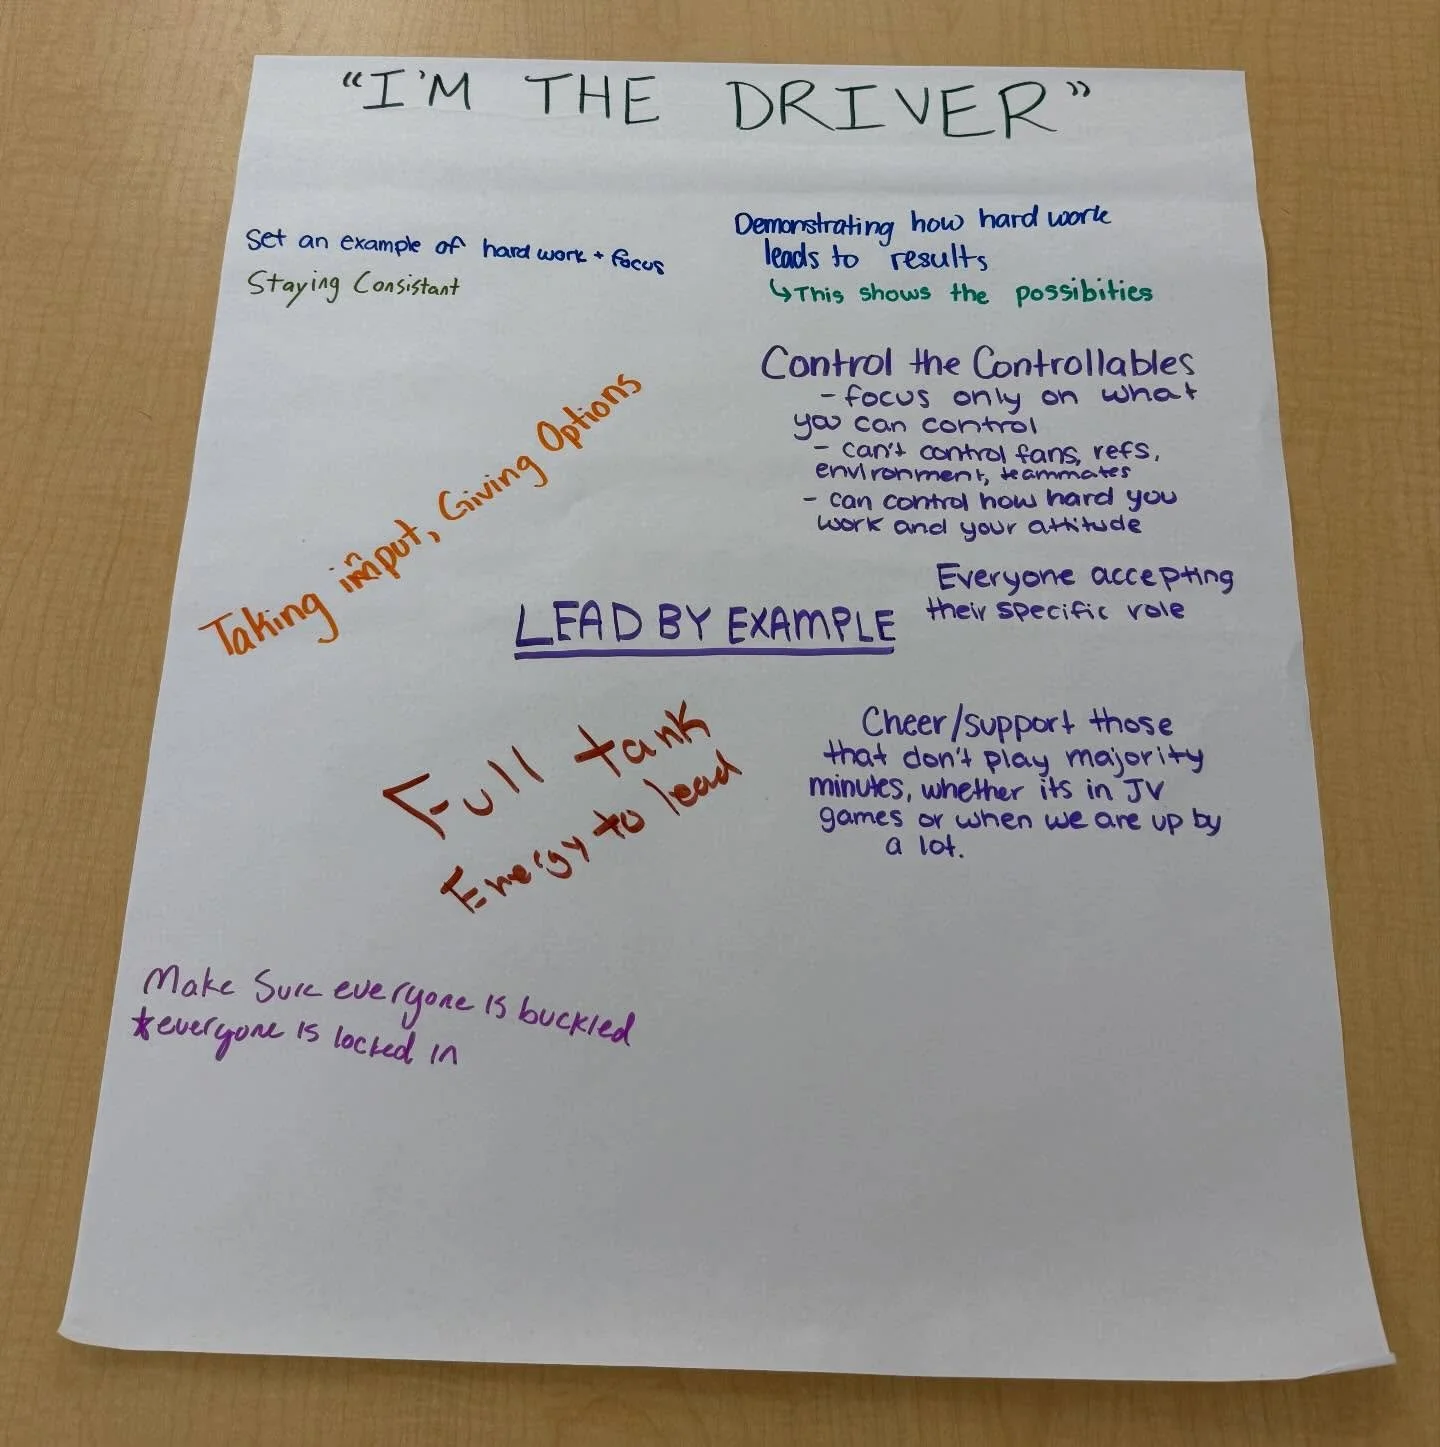 "I'M THE DRIVER"
Set an example of hard work + focus
Staying Consistant
Demonstrating how hard work
leads to results
↳This shows the possibities
Control the Controllables
- focus only on what
you can control
- can't control fans, refs,
environment, teammates
- can control how hard you
work and your attitude
Taking imput, Giving Options
Everyone accepting
their specific role
LEAD BY EXAMPLE
Full tank
Energy to lead
Cheer/support those
that don't play majority
minutes, whether its in JV
games or when we are up by
a lot.
Make Sure everyone is buckled
*everyone is locked in